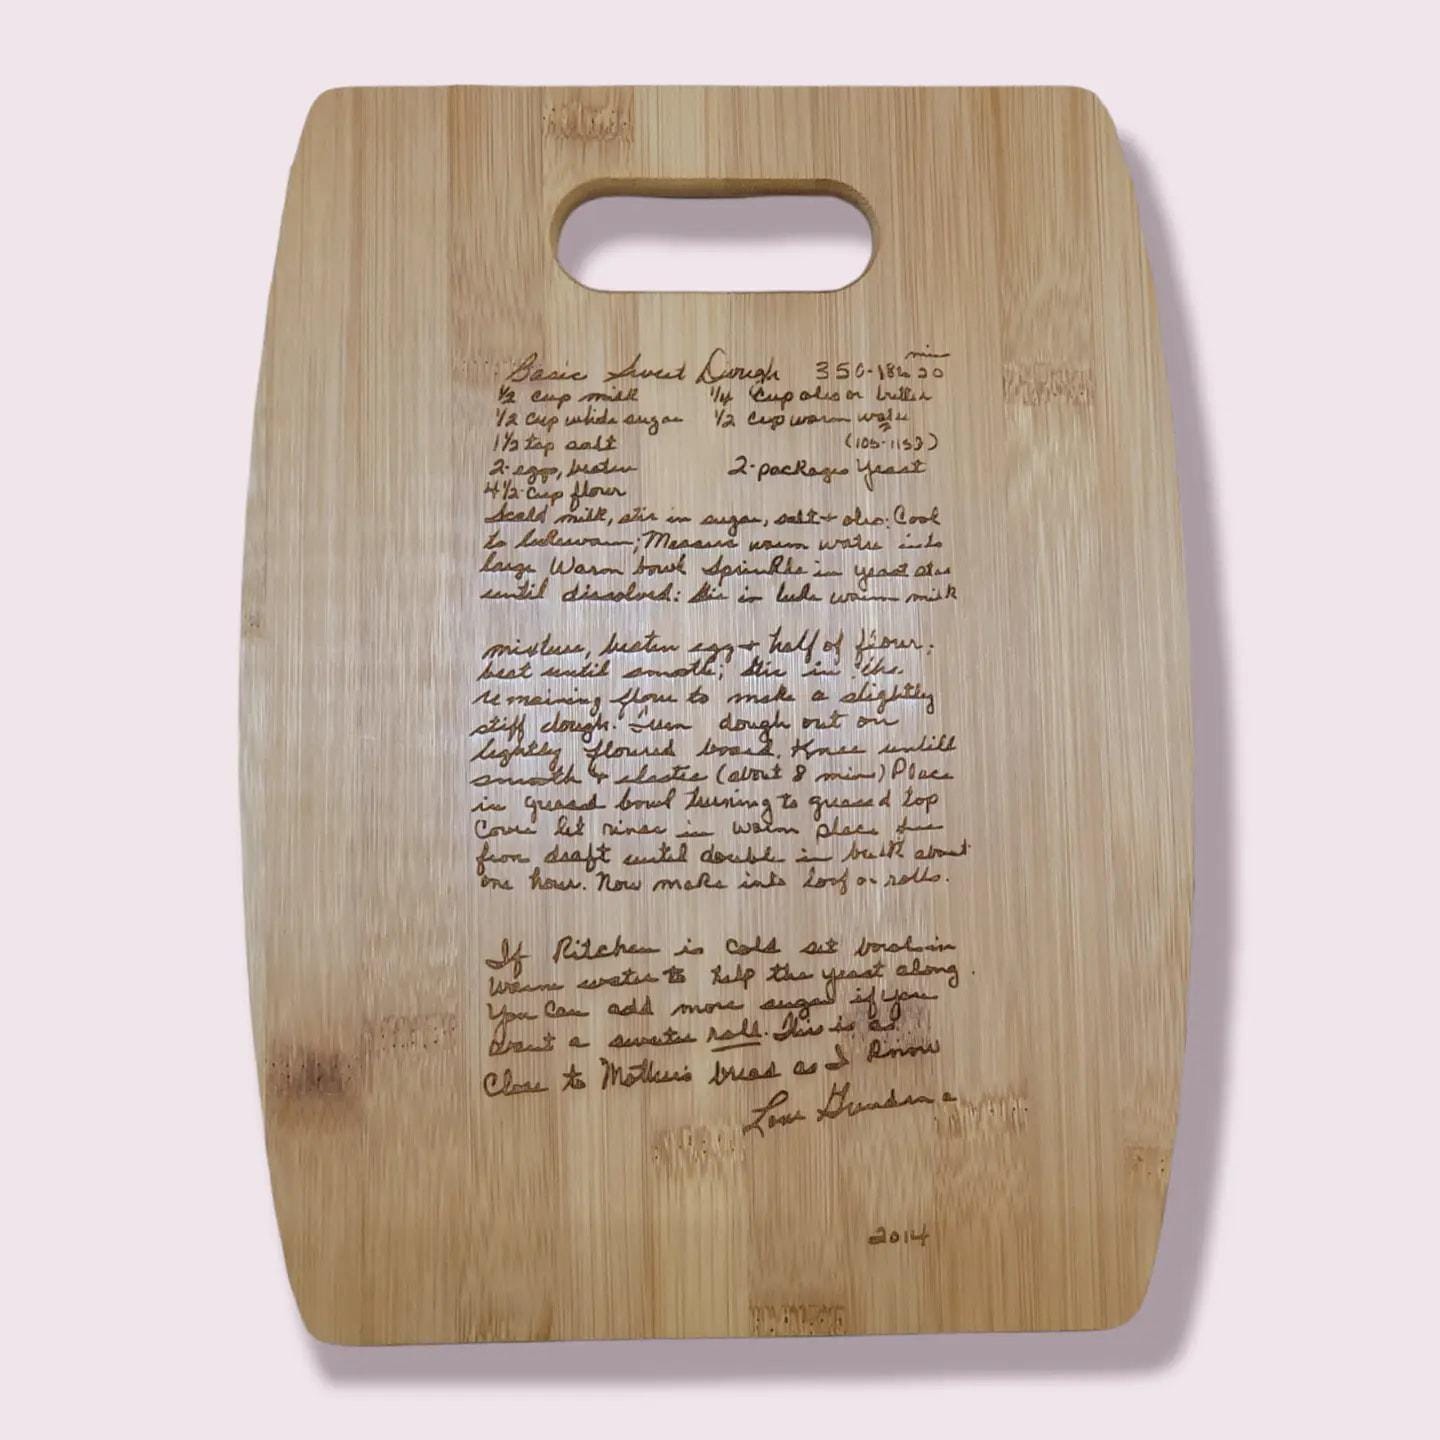 Basic Sweet Dough 350-18 to 20 min
1/2 cup milk 1/4 cup oleo or butter
1/2 cup white sugar 1/2 cup warm water
1 1/2 tsp salt (105-115°)
2-eggs, beaten 2-packages yeast
4 1/2 cup flour
Scald milk, stir in sugar, salt + oleo; Cool
to lukewarm; Measure warm water into
large Warm bowl Sprinkle in yeast stir
until dissolved: Stir in luke warm milk
mixture, beaten egg + half of flour;
beat until smooth; Stir in the
remaining flour to make a slightly
stiff dough. Turn dough out on
lightly floured board. Knee untill
smooth & elastic (about 8 min) Place
in greased bowl turning to greased top
Cover let rinse in warm place free
from draft until double in bulk about
one hour. Now make into loaf or rolls.
If Kitchen is cold set bowl in
Warm water to help the yeast along.
You Can add more sugar if you
want a sweeter roll. This is as
Close to Mother's bread as I Know
Love Grandma
2014